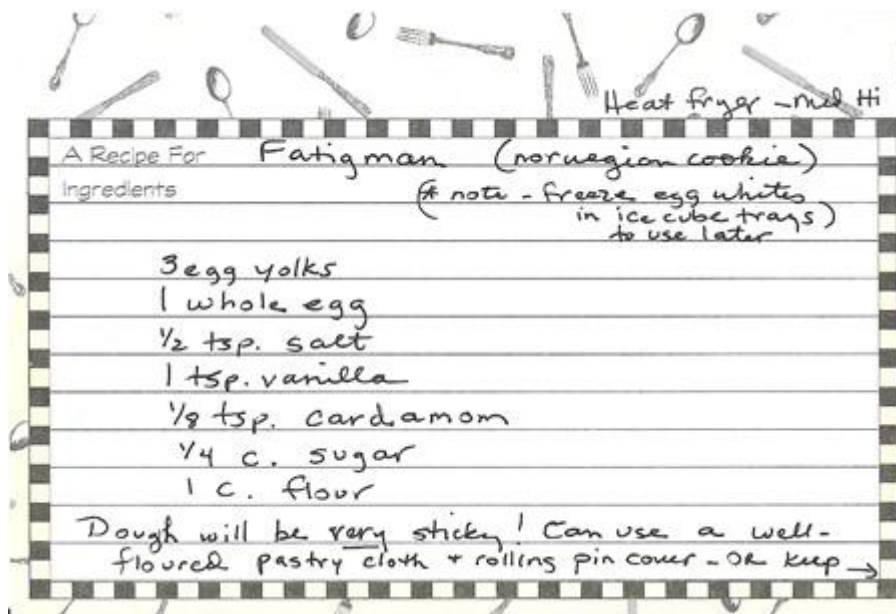 Heat fryer - med Hi
A Recipe For Fatigman (norwegian cookie)
Ingredients (* note - freeze egg whites
in ice cube trays)
to use later
3 egg yolks
1 whole egg
1/2 tsp. salt
1 tsp. vanilla
1/8 tsp. cardamom
1/4 c. sugar
1 c. flour
Dough will be very sticky! Can use a well-
floured pastry cloth + rolling pin cover - OR keep →